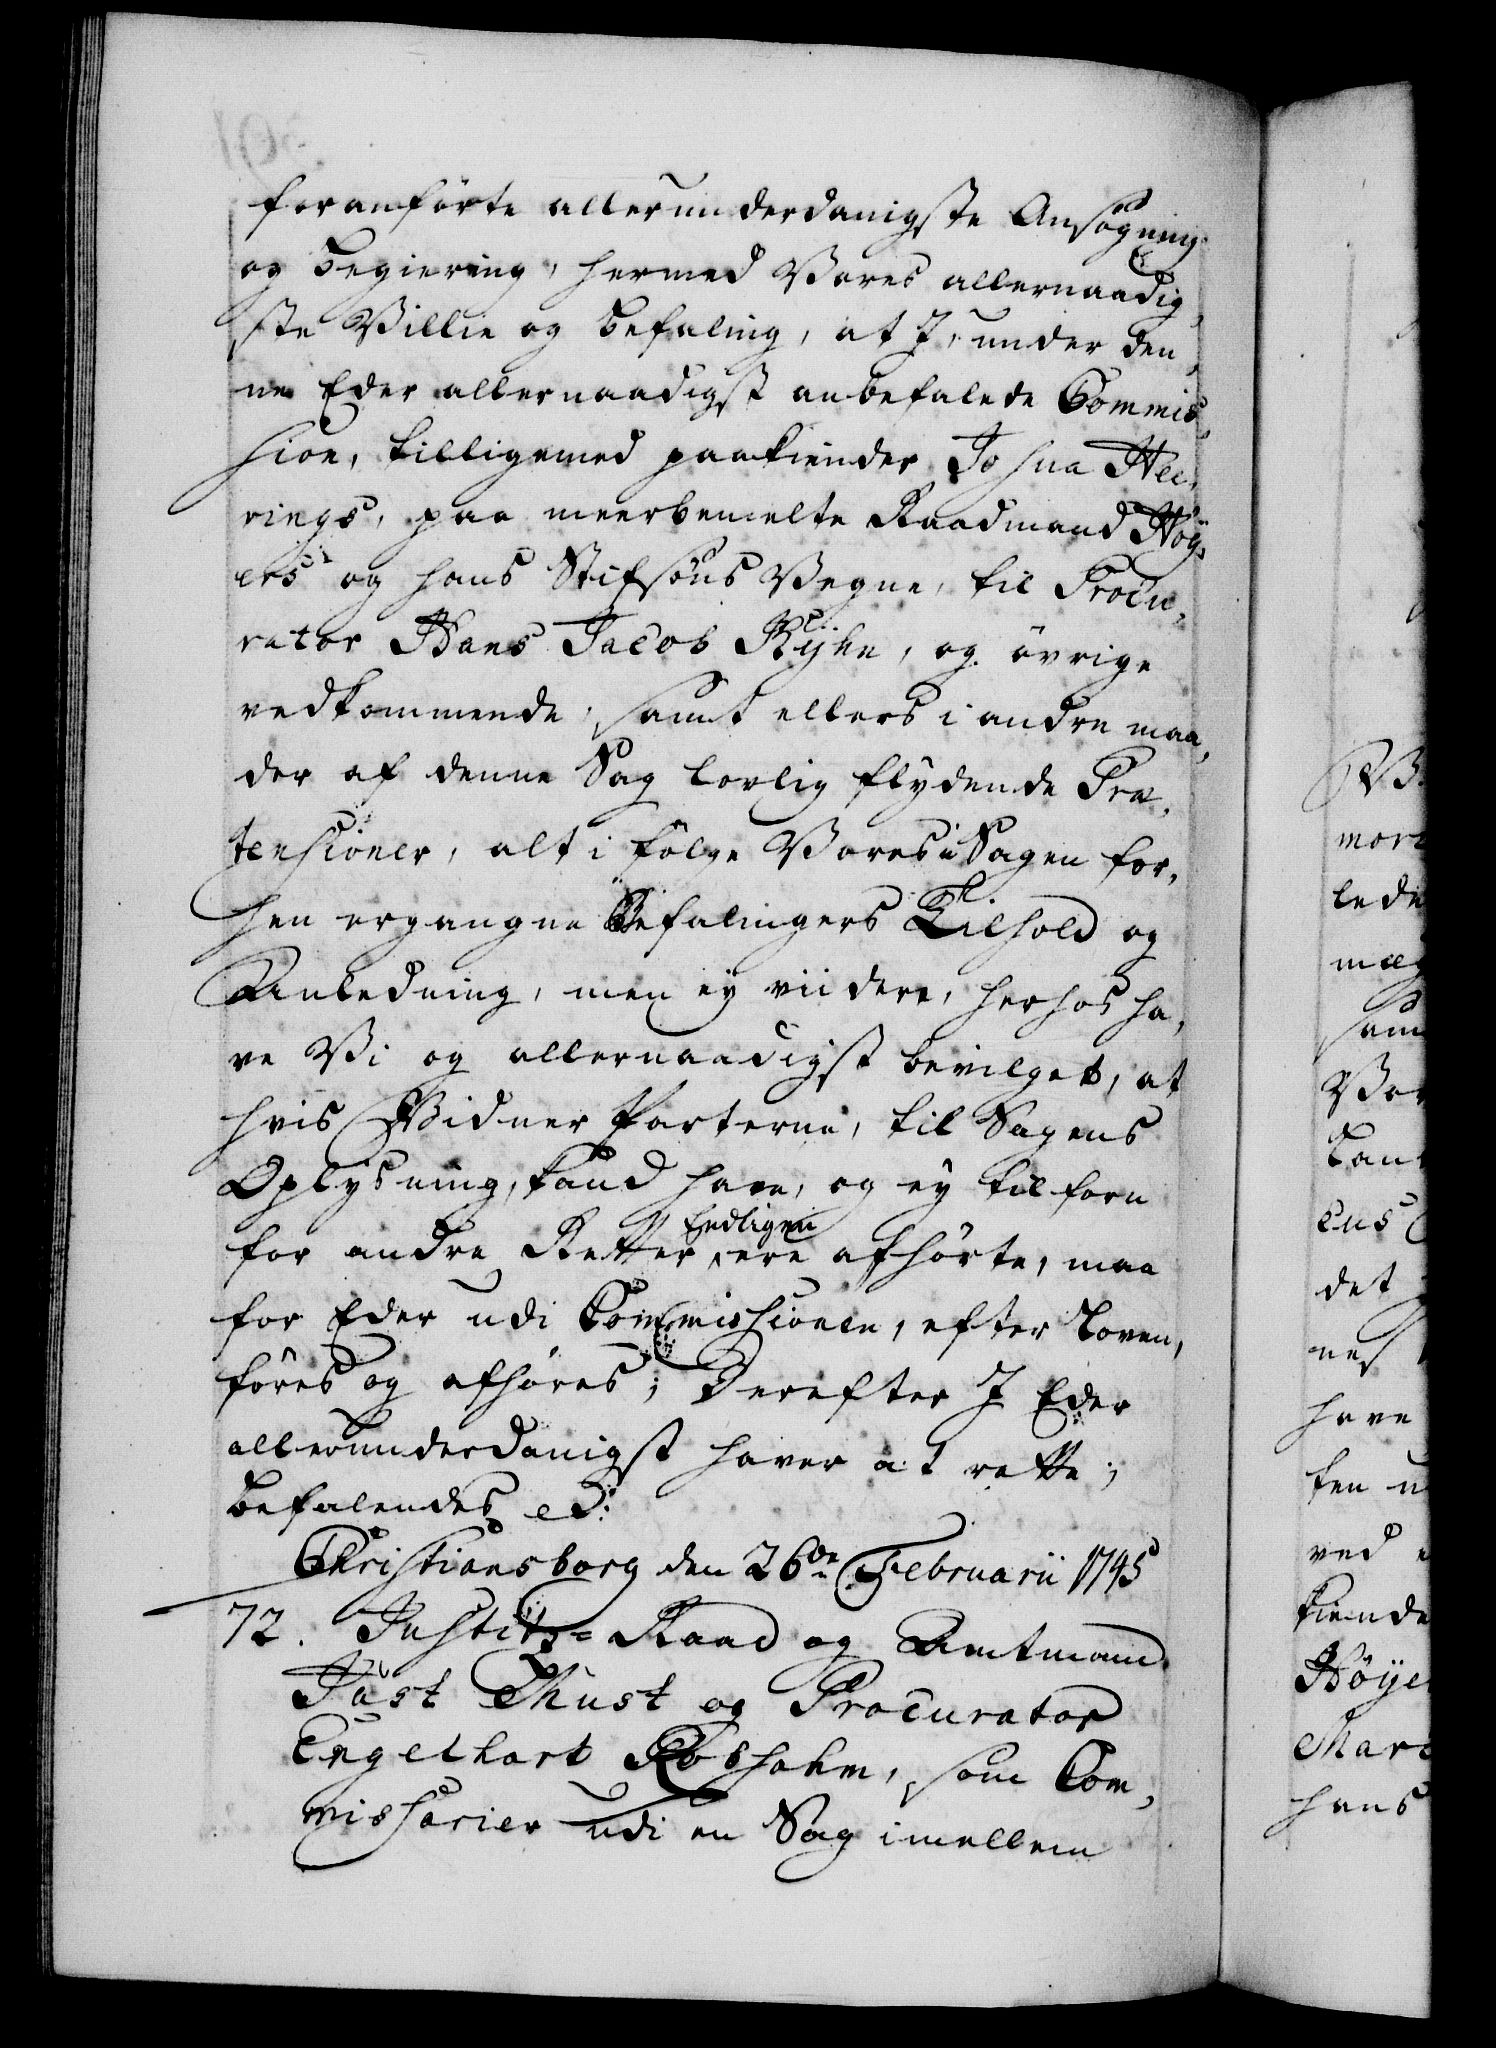 foranförte allerunderdanigste Ansøgning
og begiering, hermed Vores allernaadig,
ste Villie og befaling, at I, under den,
ne Eder allernaadigst anbefalede Commis,
sion, tilligemed paakiender Josua Hee,
rings, paa meerbemelte Raadmand Höy,
ers og hans Stifsöns Vegne, til Procu,
rator Hans Jacob Kyhn, og övrige
vedkommende, samt ellers i andre maa,
der af denne Sag lovlig flydende Præ,
tensioner, alt i fölge Vores i Sagen for,
hen ergangne Befalingers Tilhold og
Anledning, men ey viidere, herhos ha,
ve Vi og allernaadigst bevilget, at
hvis Vidner Parterne, til Sagens
Oplysning, kand have, og ey tilforn
for andre Retter endligen ere afhörte, maa
for Eder udi Commissionen, efter Loven,
föres og afhöres; Derefter I Eder
allerunderdanigst haver at rette;
befalendes ed:
Christiansborg den 26de Februarii 1745
72. Justitz=Raad og Amtmand
Jüst Must og Procurator
Engelhart Rosholm, som Com,
missarier udi en Sag imellem